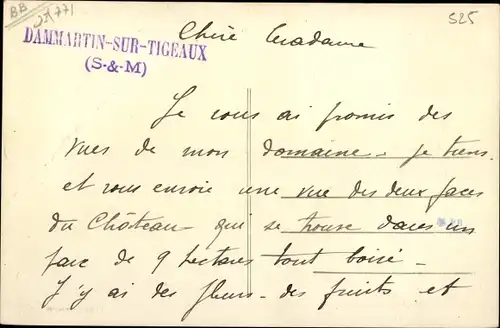 BB
525
DAMMARTIN-SUR-TIGEAUX
(S-&-M)
Chère Madame
Je vous ai promis des
vues de mon domaine. je tiens
et vous envoie une vue des deux faces
du Château qui se trouve dans un
parc de 9 hectares tout boisé -
J'y ai des fleurs - des fruits et